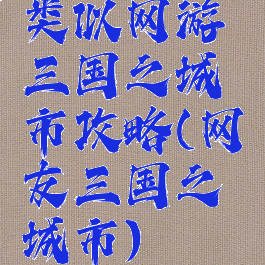 类似网游
三国之城
市攻略(网
友三国之
城市)